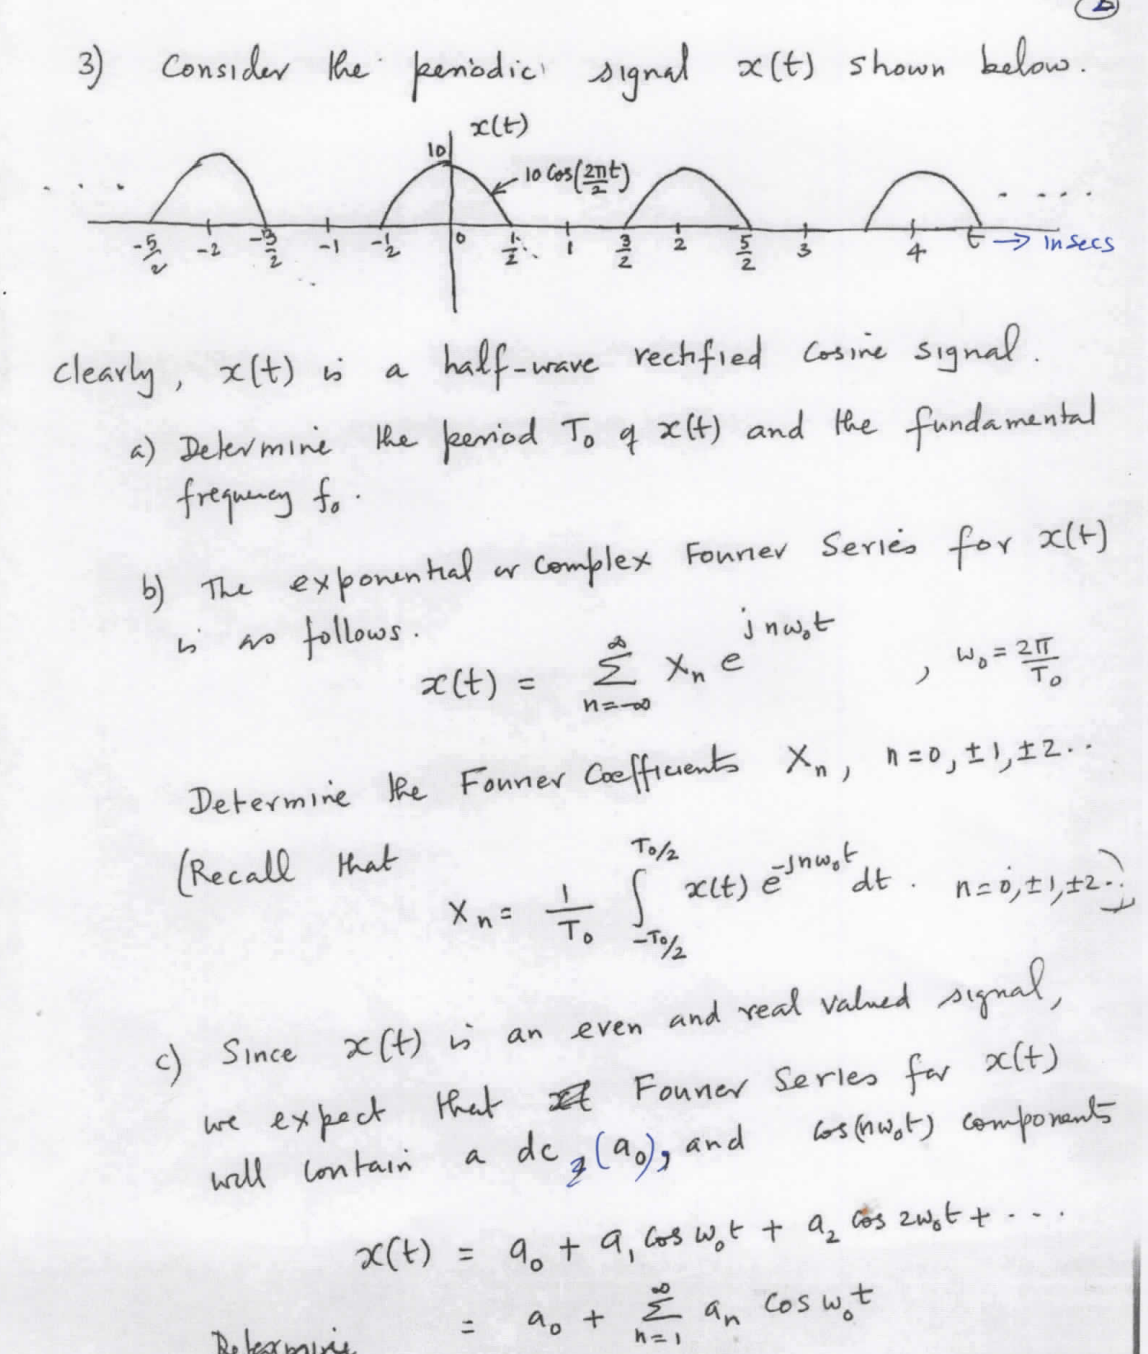 3) Consider the periodic signal x(t) shown below.
x(t)
10
10 Cos(2πt/2)
.... ....
-5/2 -2 -3/2 -1 -1/2 0 1/2 1 3/2 2 5/2 3 4 t → in secs
clearly, x(t) is a half-wave rectified cosine signal.
a) Determine the period T₀ of x(t) and the fundamental
frequency f₀.
b) The exponential or complex Fourier Series for x(t)
is as follows.
x(t) = ∑_{n=-∞}^{∞} Xₙ e^{jnω₀t} , ω₀ = 2π/T₀
Determine the Fourier Coefficients Xₙ, n=0, ±1, ±2..
(Recall that
Xₙ = 1/T₀ ∫_{-T₀/2}^{T₀/2} x(t) e^{-jnω₀t} dt. n=0, ±1, ±2..)
c) Since x(t) is an even and real valued signal,
we expect that Fourier Series for x(t)
will contain a dc (a₀), and cos(nω₀t) components
x(t) = a₀ + a₁ cos ω₀t + a₂ cos 2ω₀t + ....
= a₀ + ∑_{n=1}^{∞} aₙ cos ω₀t
Determine